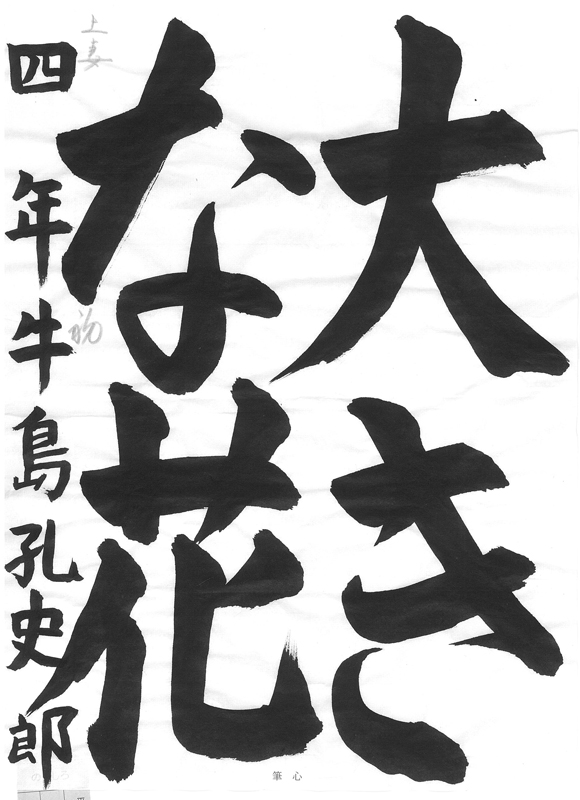 大き
な花
四年牛島孔史郎
上妻
心筆